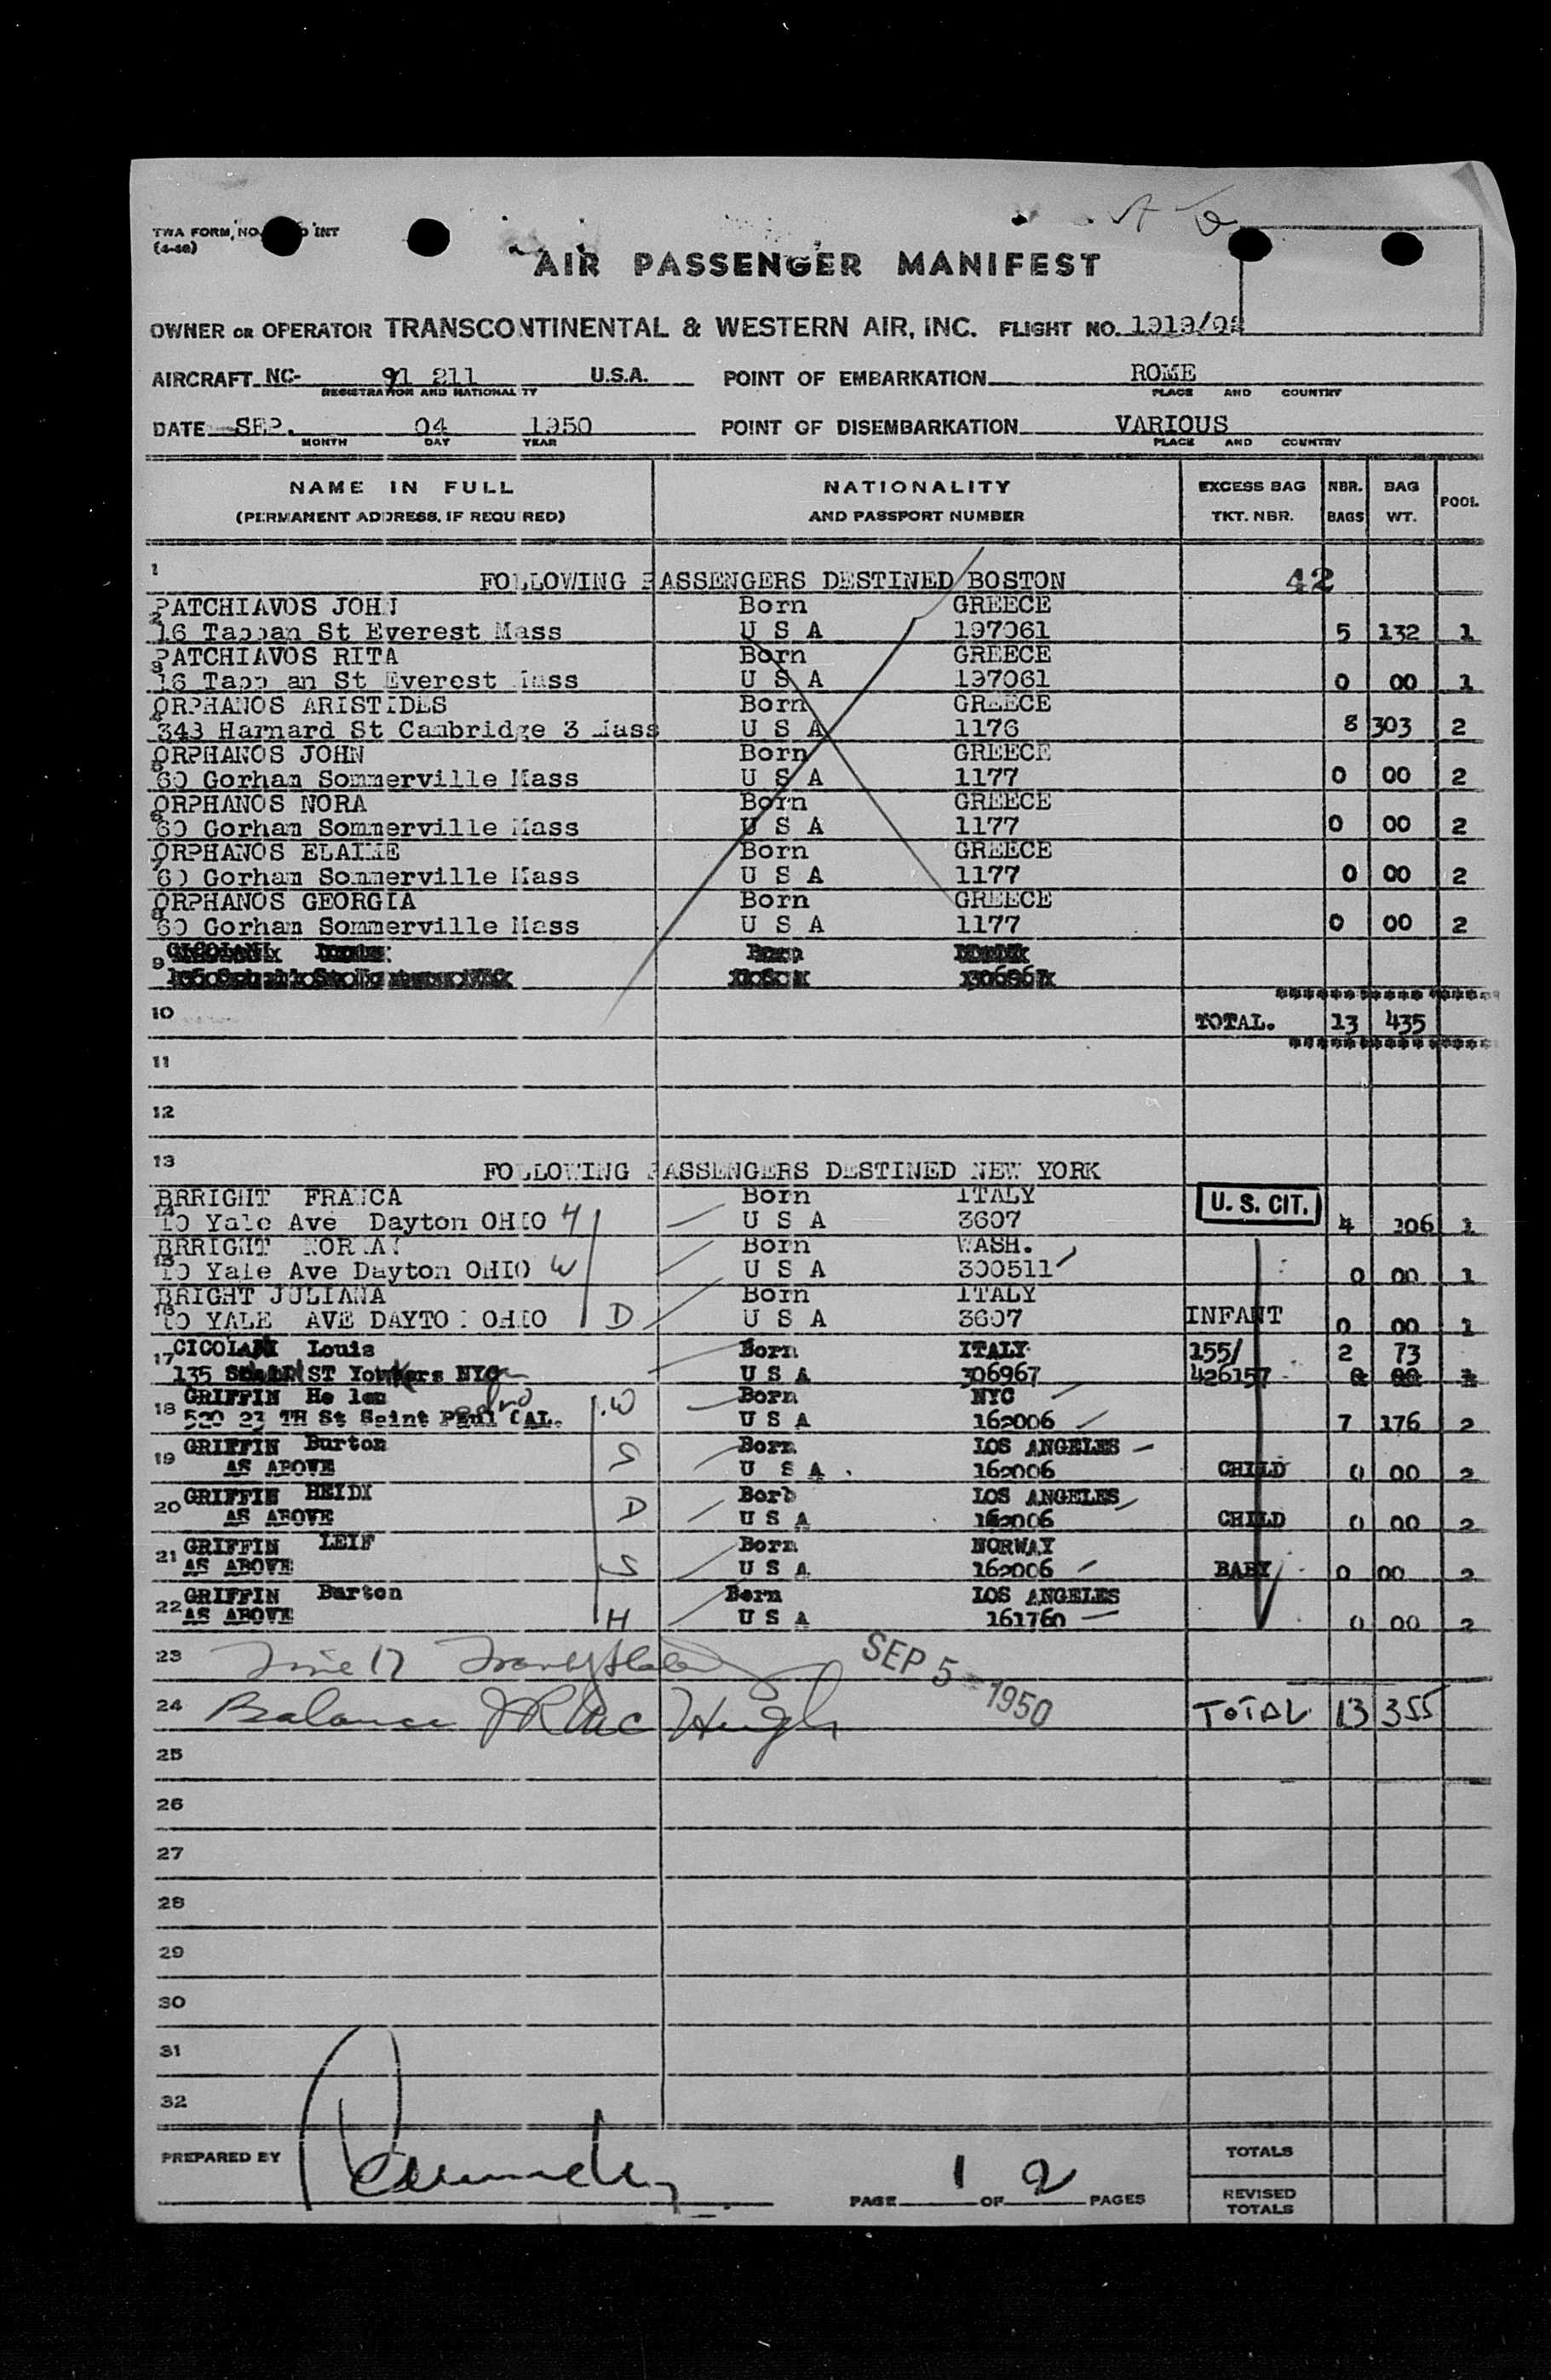 TWA FORM, NO. INT
(4-48)
AIR PASSENGER MANIFEST
OWNER OR OPERATOR TRANSCONTINENTAL & WESTERN AIR, INC. FLIGHT NO.
AIRCRAFT NC- 91 211 U.S.A. POINT OF EMBARKATION ROME
REGISTRATION AND NATIONALITY PLACE AND COUNTRY
DATE SEP. 04 1950 POINT OF DISEMBARKATION VARIOUS
MONTH DAY YEAR PLACE AND COUNTRY
NAME IN FULL NATIONALITY EXCESS BAG NBR. BAG POOL
(PERMANENT ADDRESS, IF REQUIRED) AND PASSPORT NUMBER TKT. NBR. BAGS WT.
1 FOLLOWING PASSENGERS DESTINED BOSTON 42
PATCHIAVOS JOHN Born GREECE
2 16 Tappan St Everest Mass U S A 197061 5 132 1
PATCHIAVOS RITA Born GREECE
3 16 Tapp an St Everest Mass U S A 197061 0 00 1
ORPHANOS ARISTIDES Born GREECE
4 343 Harnard St Cambridge 3 Mass U S A 1176 8 303 2
ORPHANOS JOHN Born GREECE
5 60 Gorhan Sommerville Mass U S A 1177 0 00 2
ORPHANOS NORA Born GREECE
6 60 Gorhan Sommerville Mass U S A 1177 0 00 2
ORPHANOS ELAINE Born GREECE
7 60 Gorhan Sommerville Mass U S A 1177 0 00 2
ORPHANOS GEORGIA Born GREECE
8 60 Gorhan Sommerville Mass U S A 1177 0 00 2
9
10 TOTAL. 13 435
11
12
13 FOLLOWING PASSENGERS DESTINED NEW YORK
BRRIGHT FRANCA Born ITALY U. S. CIT.
14 10 Yale Ave Dayton OHIO U S A 3607 4 106 1
BRRIGHT NORMAN Born WASH.
15 10 Yale Ave Dayton OHIO W U S A 300511 0 00 1
BRIGHT JULIANA Born ITALY
16 10 YALE AVE DAYTON OHIO D U S A 3607 INFANT 0 00 1
17 CICOLANI Louis Born ITALY 155/ 2 73
135 ST Yonkers NYC U S A 306967 426157
GRIFFIN He len Born NYC
18 520 23 TH St Saint CAL. W U S A 160006 7 176 2
19 GRIFFIN Burton S Born LOS ANGELES
AS ABOVE U S A . 160006 CHILD 0 00 2
20 GRIFFIN HEIDI D Born LOS ANGELES
AS ABOVE U S A 160006 CHILD 0 00 2
21 GRIFFIN LEIF Born NORWAY
AS ABOVE S U S A 160006 BABY 0 00 2
22 GRIFFIN Burton Born LOS ANGELES
AS ABOVE H U S A 161760 0 00 2
23 Line 17 SEP 5 - 1950
24 Balance TOTAL 13 355
25
26
27
28
29
30
31
32
PREPARED BY TOTALS
PAGE 1 OF 2 PAGES REVISED
TOTALS